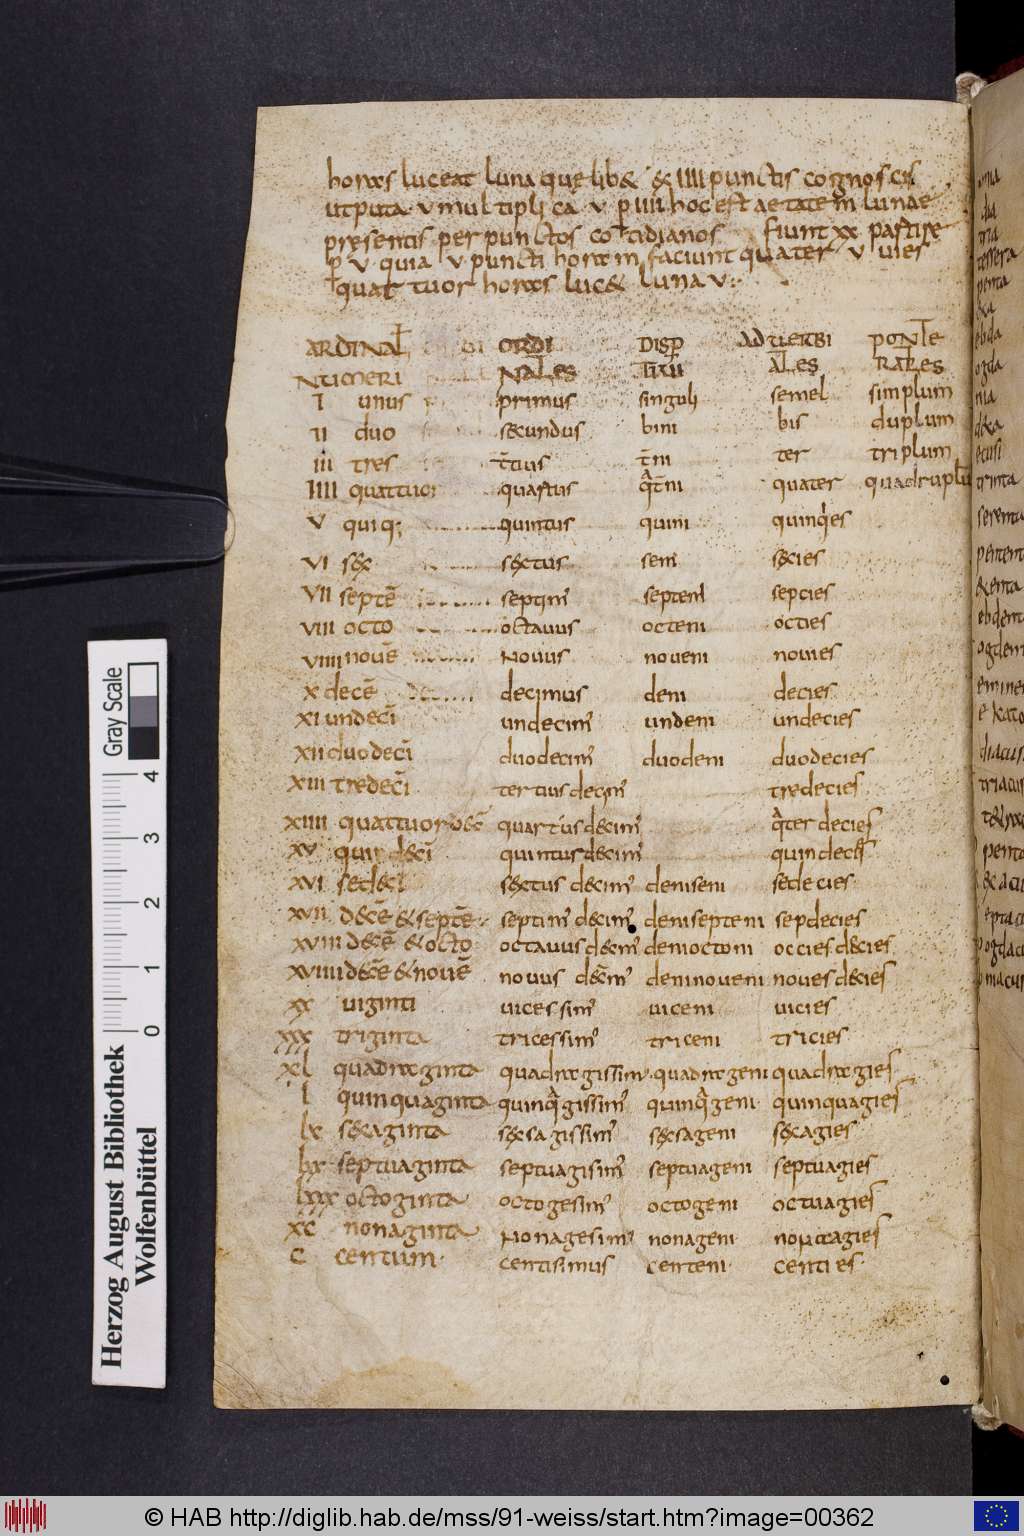 horas luceat luna que lib& & IIII punctis cognoscis
utputa · v multiplica · v p̄ IIII hoc est aetatem lunae
presentis per punctos cotidianos fiunt xx partire
p̄ v · quia v puncti horam faciunt quater v vies
quattuor horas luc& luna v :·
ARDINAL ORDI DISP ADVERBI PONDE
NUMERI NALES TITU ALES RALES
I unus primus singuli semel simplum
II duo secundus bini bis duplum
III tres t̄tius t̄ni ter triplum
IIII quattuor quartus quat̄ni quater quadruplū
V quīq; quintus quini quinqies
VI sex sextus seni sexies
VII septē septim' septeni sepcies
VIII octo octavus octeni octies
VIIII novē Novus noveni novies
X decē decimus deni decies
XI undecī undecim' undeni undecies
XII duodecī duodecim' duodeni duodecies
XIII tredecī tertius decim' tredecies
XIIII quattuor decē quartus decim' qater decies
XV quindecī quintus decim' quindecies
XVI sedecī sextus decim' deniseni sedecies
XVII decē & septē septim' decim' deniseptteni sepdecies
XVIII decē & octo octavus decim' denioctoni occies decies
XVIIII decē & novē novus decim' deninoveni novies decies
XX viginti vicessim' viceni vicies
XXX triginta tricessim' triceni tricies
XL quadraginta quadragissim' quadrageni quadragies
L quinquaginta quinqagissim' quinqageni quinquagies
LX sexaginta sexsagissim' sexsageni sexagies
LXX septuaginta septuagisim' septuageni septuagies
LXXX octoginta octogesim' octogeni octuagies
XC nonaginta Nonagesim' nonageni nonagies
C centum centisimus centeni centies
Gray Scale
4 3 2 1 0
Herzog August Bibliothek
Wolfenbüttel
© HAB http://diglib.hab.de/mss/91-weiss/start.htm?image=00362